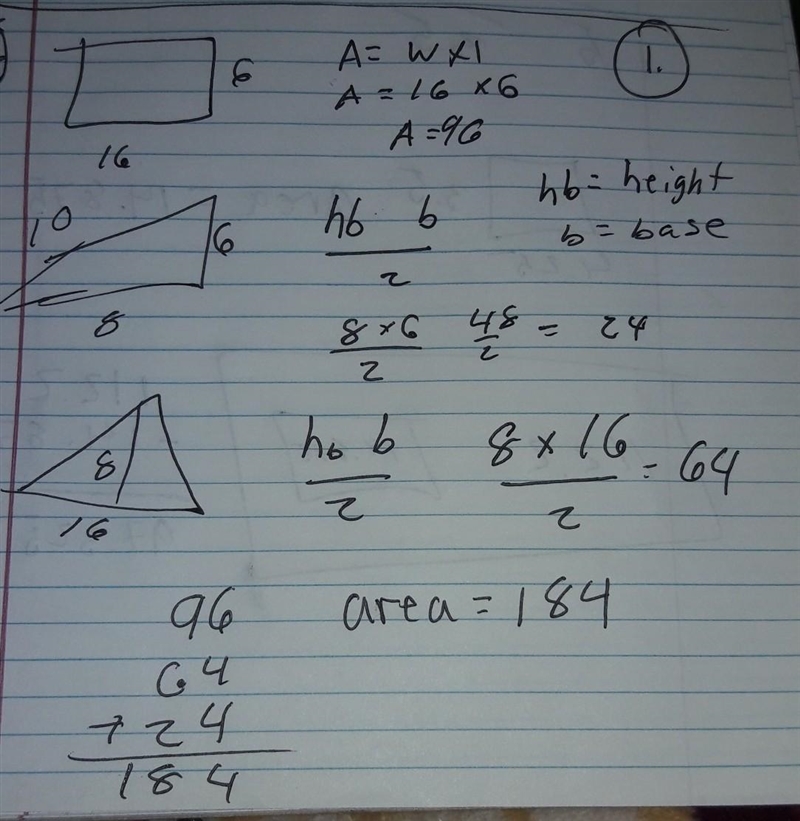 1.
6
16
A = W x l
A = 16 x 6
A = 96
hb = height
b = base
10
6
8
hb b
2
8 x 6
2
48
2
= 24
8
16
hb b
2
8 x 16
2
= 64
96
64
+ 24
184
area = 184